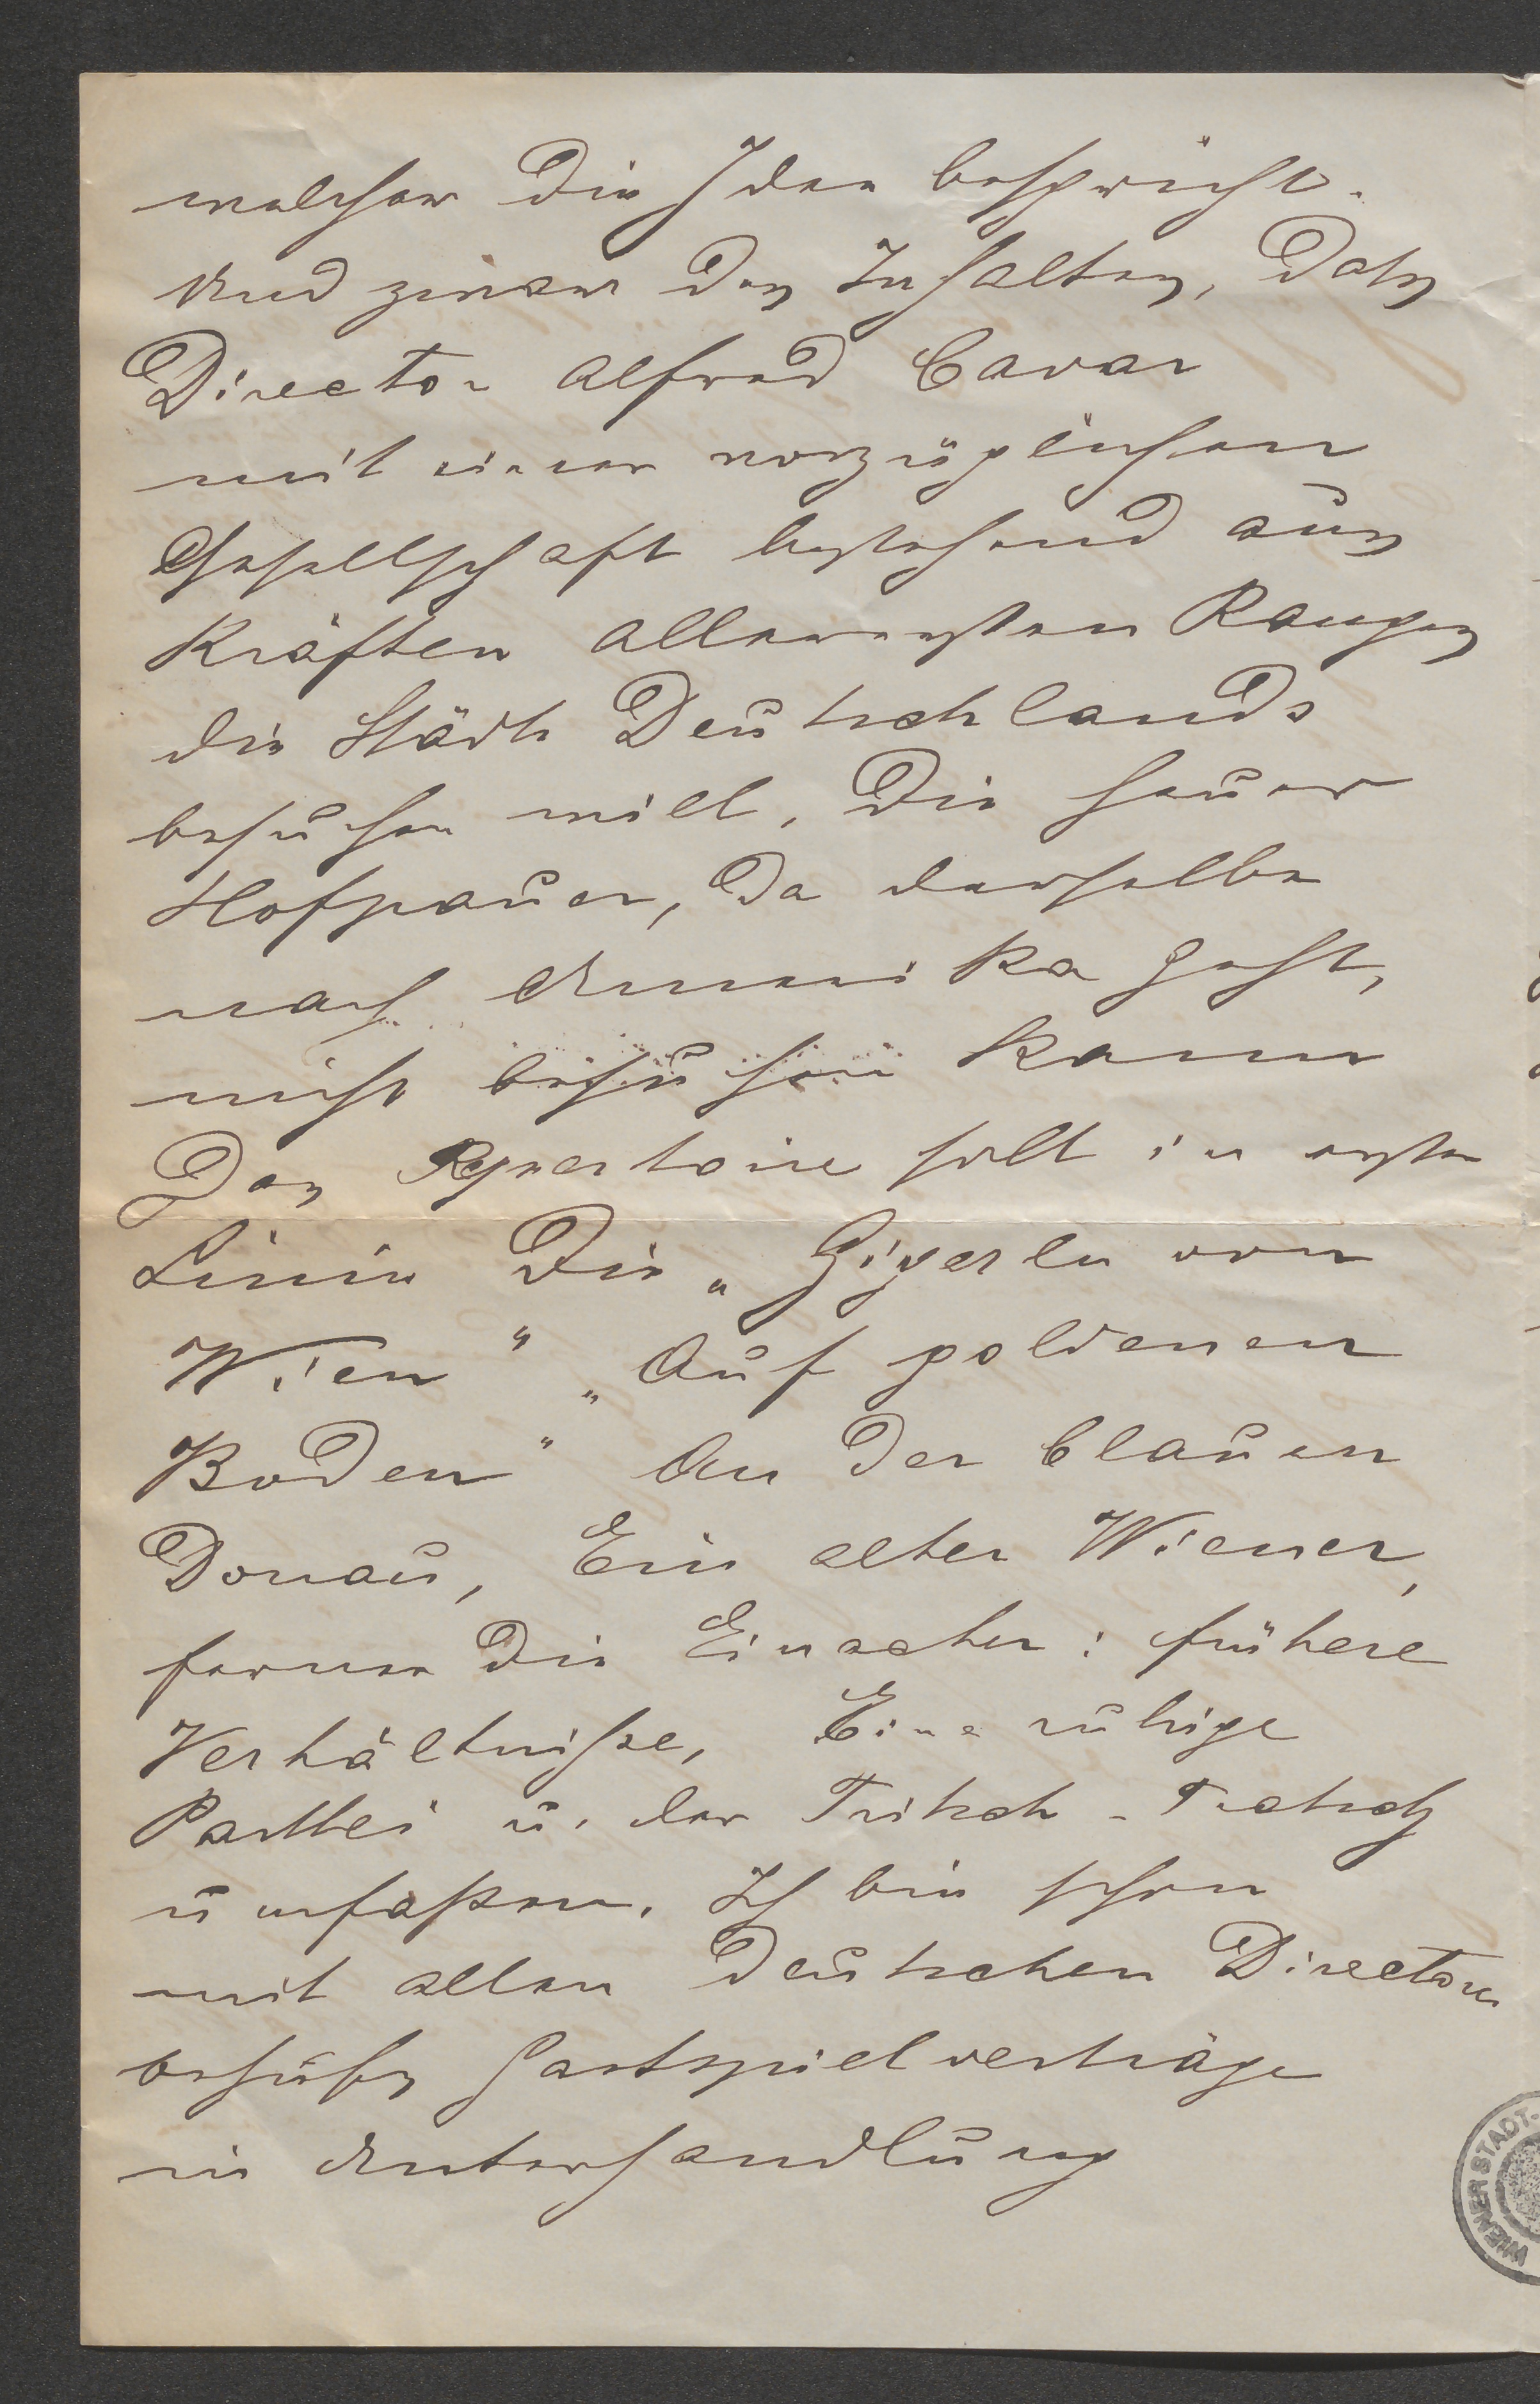 welcher die Idee bespricht.
Und zwar des Inhaltes, daß
Director Alfred Cavar
mit einer vorzüglichen
Gesellschaft bestehend aus
Kräften allerersten Ranges
die Städte Deutschlands
besuchen will, die heuer
Hofpauer, da derselbe
nach Amerika geht,
nicht besuchen kann
Das Repertoire soll in erster
Linie die „Gigerln von
Wien" „Auf goldenen
Boden" An der blauen
Donau, Ein alter Wiener,
ferner die Einacter: frühere
Verhältniße, Eine ruhige
Parthei u. der Tritsch-Tratsch
umfaßen. Ich bin schon
mit allen deutschen Directoren
behufs Gastspielverträge
in Unterhandlung
WIENER STADT-